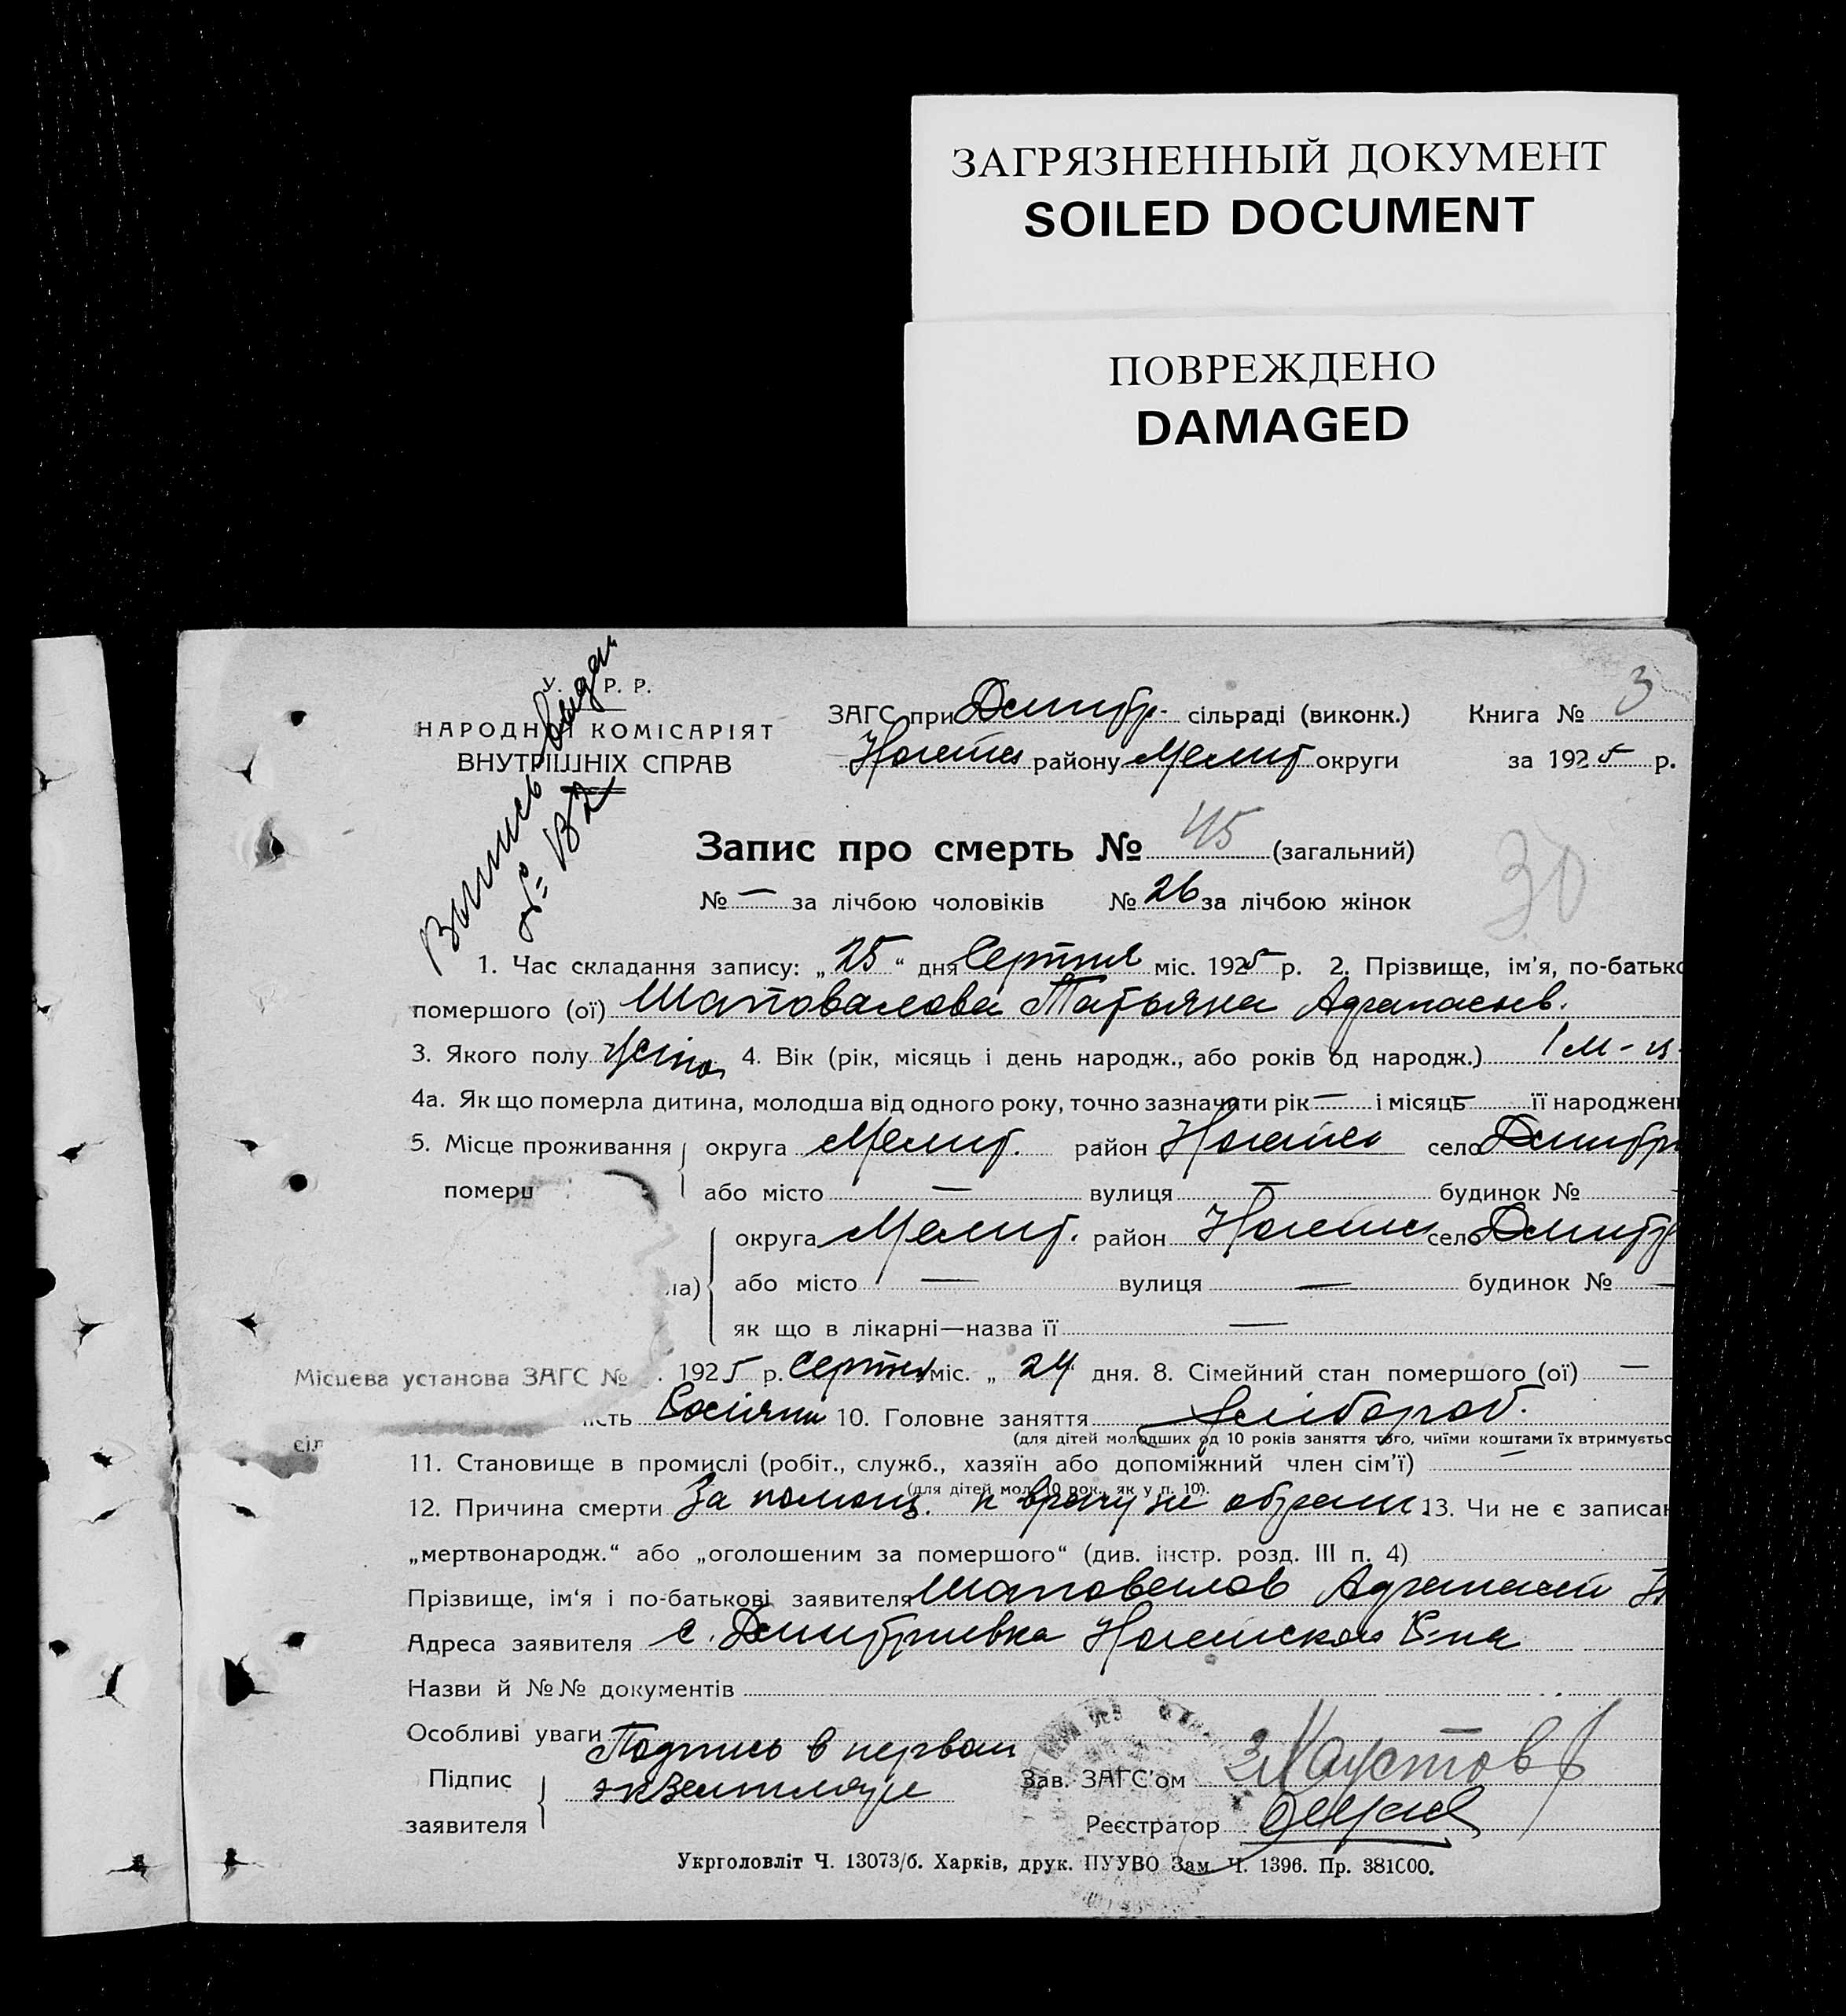 ЗАГРЯЗНЕННЫЙ ДОКУМЕНТ
SOILED DOCUMENT
ПОВРЕЖДЕНО
DAMAGED
У. Р. Р.
НАРОДНИЙ КОМІСАРІЯТ
ВНУТРІШНІХ СПРАВ
Выпись
ЗАГС при Дмитр- сільраді (виконк.) Книга № 3
району Мелит округи за 1925 р.
Запис про смерть № 45 (загальний)
30
№ — за лічбою чоловіків № 26 за лічбою жінок
1. Час складання запису: „25“ дня Серпня міс. 1925 р. 2. Прізвище, ім'я, по-батько
помершого (ої) Шаповалова Татьяна Афанасьев.
3. Якого полу 4. Вік (рік, місяць і день народж., або років од народж.) 1 м-ц
4а. Як що померла дитина, молодша від одного року, точно зазначити рік — і місяць — її народжен
5. Місце проживання округа Мелит. район село Дмитр
помер або місто — вулиця — будинок № —
округа Мелит. район село Дмитр
ла) або місто — вулиця — будинок № —
як що в лікарні—назва її —
Місцева установа ЗАГС № 1925 р. Серпня міс. „ 24 дня. 8. Сімейний стан помершого (ої) —
ість 10. Головне заняття Хлібороб.
(для дітей молодших од 10 років заняття того, чиїми коштами їх втримуєтьс
сіл
11. Становище в промислі (робіт., служб., хазяїн або допоміжний член сім'ї) —
(для дітей мол. 10 рок., як у п. 10).
12. Причина смерти За помощ. к врачу не обращ. 13. Чи не є записан
„мертвонародж.“ або „оголошеним за помершого“ (див. інстр. розд. III п. 4)
Прізвище, ім'я і по-батькові заявителя Шаповалов Афанасий
Адреса заявителя с. Дмитриевка Р-на
Назви й №№ документів
Особливі уваги Подпись в первом
Підпис экземпляре Зав. ЗАГС'ом Хаустов
заявителя Реєстратор
Укрголовліт Ч. 13073/б. Харків, друк. ПУУВО Зам. Ч. 1396. Пр. 381000.